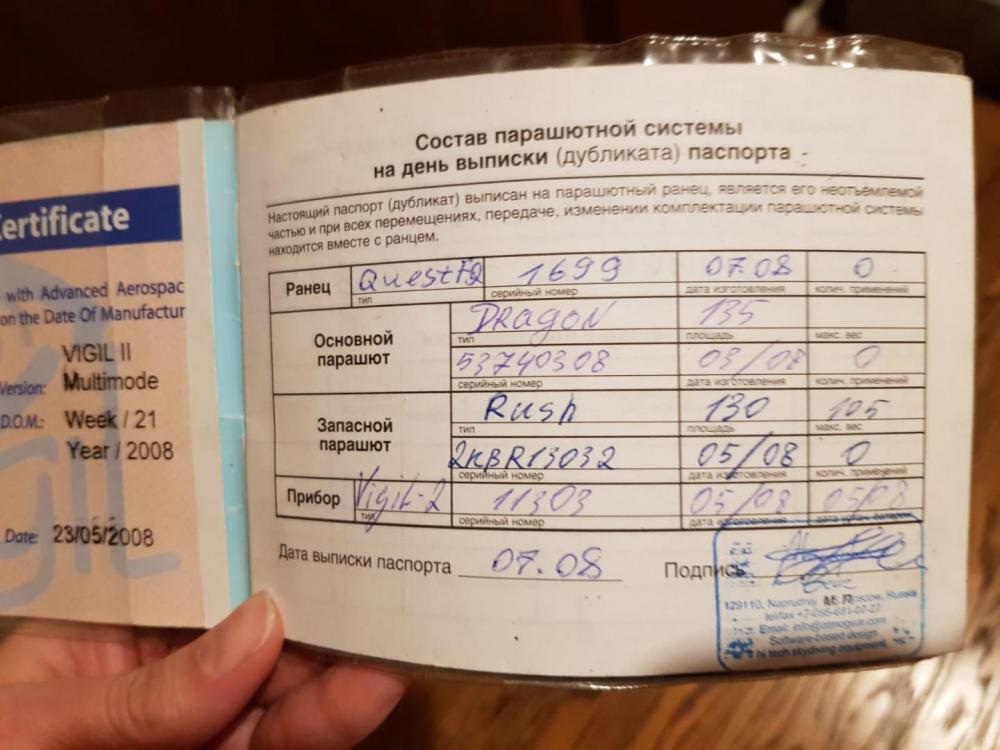 Certificate
with Advanced Aerospac
on the Date Of Manufactur
VIGIL II
Version: Multimode
D.O.M.: Week / 21
Year / 2008
Date: 23/05/2008
Состав парашютной системы
на день выписки (дубликата) паспорта
Настоящий паспорт (дубликат) выписан на парашютный ранец, является его неотъемлемой
частью и при всех перемещениях, передаче, изменении комплектации парашютной системы
находится вместе с ранцем.
Ранец Quest 1699 07.08 0
тип серийный номер дата изготовления колич. применений
Основной парашют
DRagoN 135
тип площадь макс. вес
53740308 03/08 0
серийный номер дата изготовления колич. применений
Запасной парашют
Rush 130 105
тип площадь макс. вес
2KBR13032 05/08 0
серийный номер дата изготовления колич. применений
Прибор Vigil-2 11303 05/08 05/08
тип серийный номер дата изготовления
Дата выписки паспорта 07.08 Подпись
129110, Naprudniy Moscow, Russia
tel/fax +7-095-681-07-27
Email: info@atmogear.com
Software-based design
hi tech skydiving equipment